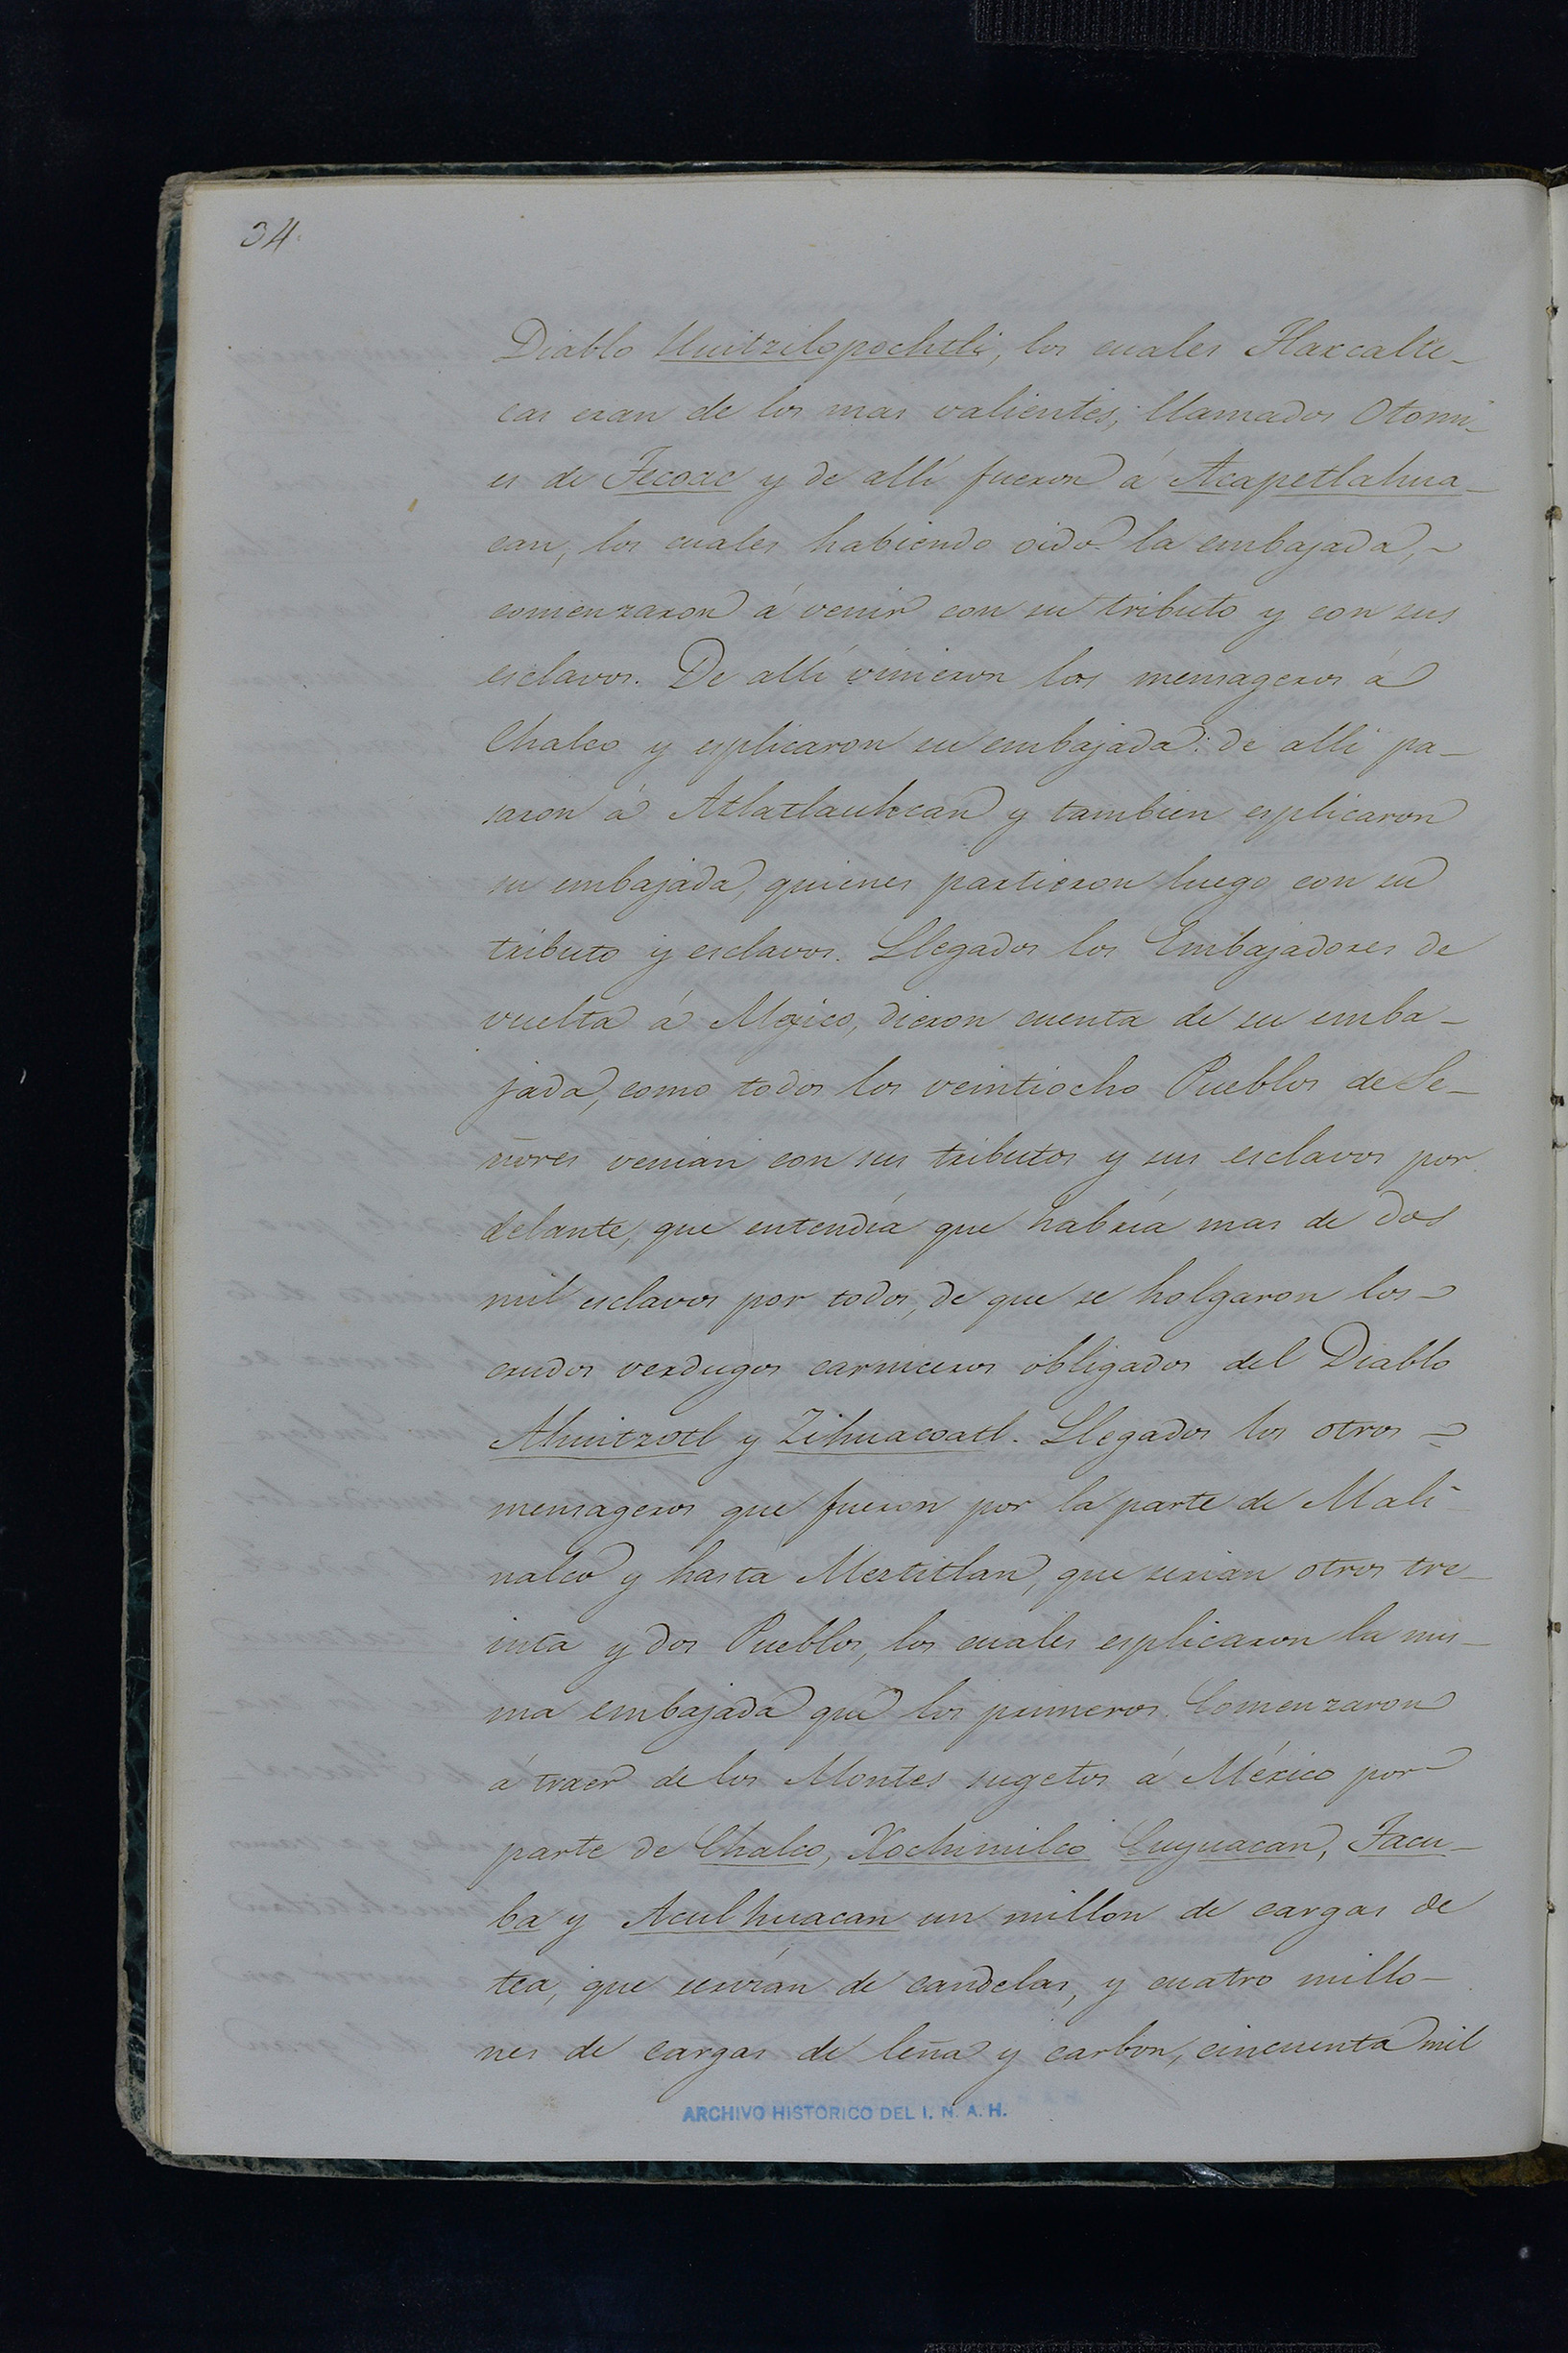 34.
Diablo Huitzilopochtli, los cuales Tlaxcalte-
cas eran de los mas valientes, llamados Otomi-
es de Tecoac y de allí fueron á Acapetlahua-
can, los cuales habiendo oido la embajada,
comenzaron á venir con su tributo y con sus
esclavos. De allí vinieron los mensageros á
Chalco y esplicaron su embajada: de alli pa-
saron á Atlatlauhcan y tambien esplicaron
su embajada, quienes partieron luego con su
tributo y esclavos. Llegados los Embajadores de
vuelta á Mejico, dieron cuenta de su emba-
jada, como todos los veintiocho Pueblos de Se-
ñores venian con sus tributos y sus esclavos por
delante, que entendía que habría mas de dos
mil esclavos por todos, de que se holgaron los
crudos verdugos carniceros obligados del Diablo
Ahuitzotl y Zihuacoatl. Llegados los otros
mensageros que fueron por la parte de Mali-
nalco y hasta Meztitlan, que serian otros tre-
inta y dos Pueblos, los cuales esplicaron la mis-
ma embajada que los primeros. Comenzaron
á traer de los Montes sugetos á México por
parte de Chalco, Xochimilco Cuyuacan, Tacu-
ba y Aculhuacan un millon de cargas de
tea, que servían de candelas, y cuatro millo-
nes de cargas de leña y carbon, cincuenta mil
ARCHIVO HISTORICO DEL I. N. A. H.